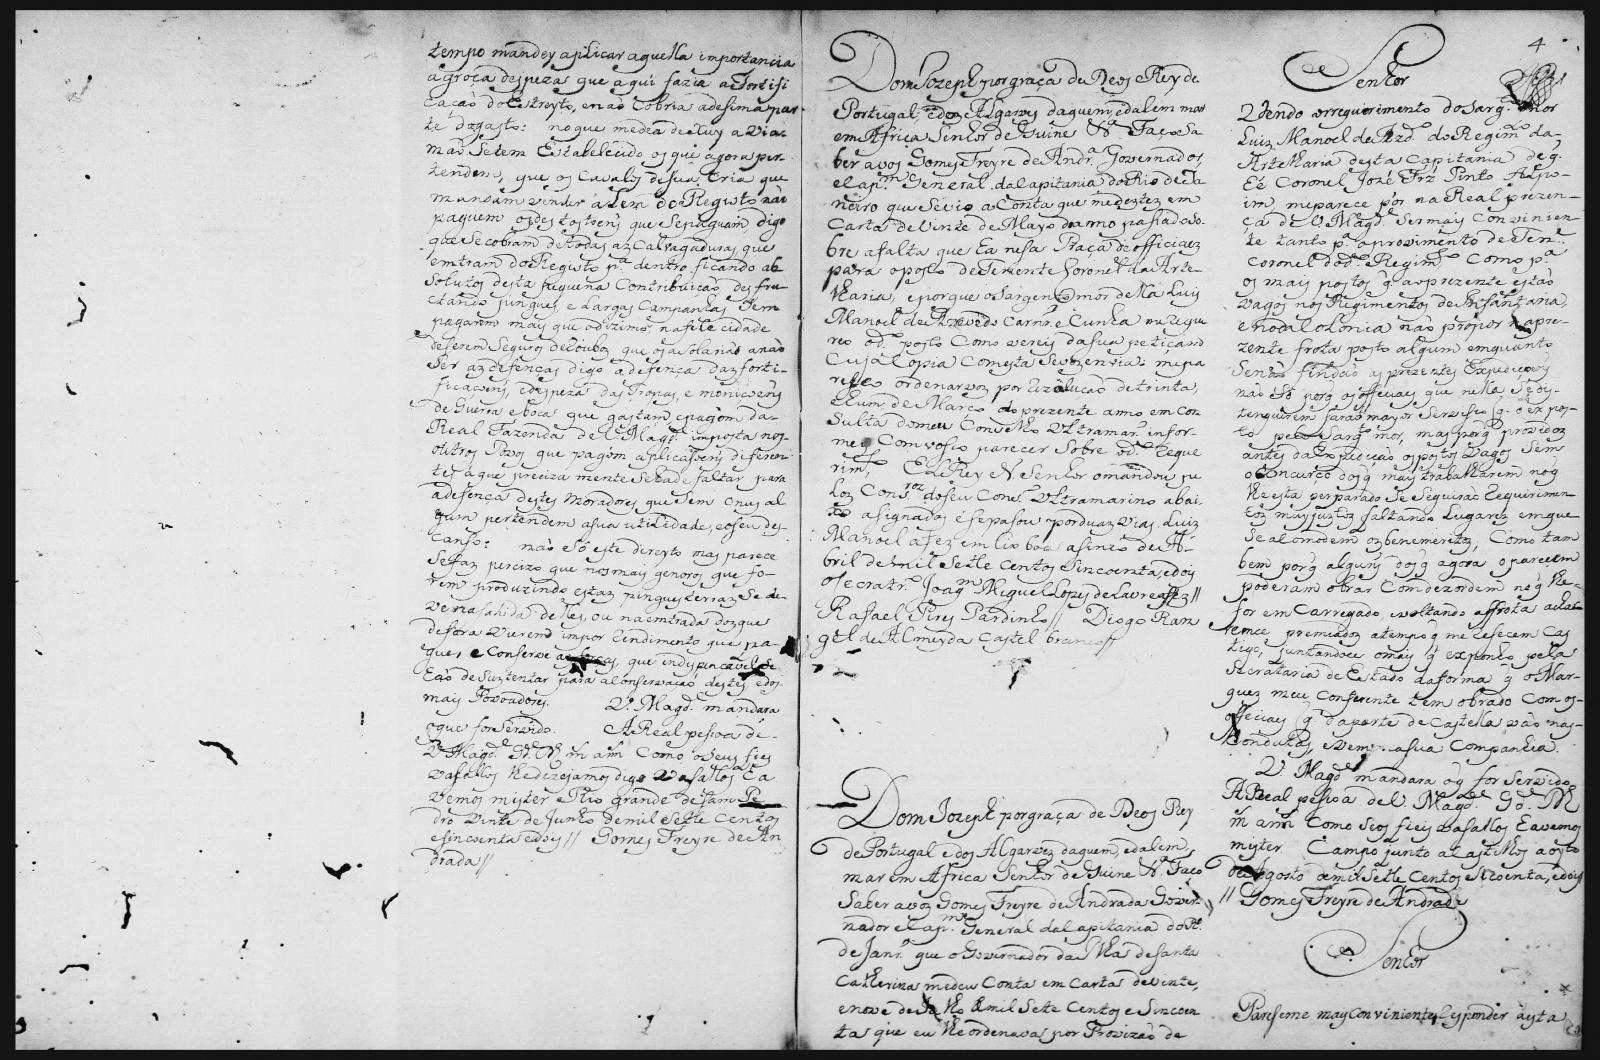 tempo mandey aplicar aquella importancia
a groça despeza que aqui fazia a Fortifi
cação do Estreyto, e não cobria a desima par
te do gasto: no que media de Luy a Via
mão se tem Estabelecido os que agora per-
tendem, que os Cavalos de sua Cria que
mandam vender alem do Registo não
paguem os des tostoens que se pagavam digo
que se cobram de todas as Cavalgaduras que
emtram do Registo p.ª dentro ficando ab
solutos desta piquena Contribuição desfru
ctando pingues e largas Campanhas sem
pagarem mais que o dizimo, na fi cidade
de serem seguros de Roubos que os asolarião a não
ser as defenças digo a defença das forti-
ficaçoens, e despeza das Tropas, e moniçoens
de Guerra e boca que gastam, e pagam da
Real Fazenda de V. Mag.de imposta nos
outros Povos que pagam aplicaçoens diferen
tes a que precizamente se ha de faltar para
a defença destes moradores, que sem onus al
gum pertendem a sua utilidade, e o seu des-
canso: não só este direyto mas parece
se faz percizo que nos mais generos que fo-
rem produzindo estas pingues terras se de
ver na sahida deles, ou na emtrada dos que
de fora vierem impor Rendimento que pa-
gue, e conserve as forças, que indispencavel se
hão de sustentar para a conservação destes, e dos
mais Povoadores. V. Mag.de mandará
o que for servido. A Real pessoa de
V. Mag.de G.de N. S. m. an. Como os seus fieis
vasallos lhe dezejamos digo vasallos ha
vemos mister. Rio grande de Sam Pe
dro vinte de Junho de mil e sette centos
e sincoenta e dois // Gomes Freyre de An
drada //
Dom Jozeph por graça de Deos Rey de
Portugal, e dos Algarves daquem, e dalem mar
em Africa Senhor de Guine &.ª Faço sa
ber a vos Gomes Freyre de Andr.ª Governador,
e Cap.m General da Capitania do Rio de Ja
neiro que se vio a Conta que me destes em
Carta de vinte de Mayo do anno passado so-
bre a falta que ha nesa Praça de officiaes
para o posto de Tenente Coronel da Arte
lharia, e porque o Sargento mor della Luis
Manoel de Azevedo Carn.ro e Cunha me reque
reo o d.º posto como vereis da sua petição
cuja Copia com esta se vos envia: me pa
receo ordenarvos por rezolução de trinta,
e hum de Março do prezente anno em con
sulta do meu Conselho Ultramar.º infor-
meis com vosso parecer sobre o d.º reque
rim.to El Rey N. Senhor o mandou pe
los Cons.ros do seu Cons.º Ultramarino abai
xo asignados e se pasou por duas vias. Luiz
Manoel a fez em Lixboa a sinco de A-
bril de mil e sette centos e sincoenta, e dois
o Secretr.º Joaq.m Miguel Lopes de Lavre a fez //
Rafael Pires Pardinho // Diogo Ran
gel de Almeyda Castel branco //
Dom Jozeph por graça de Deos Rey
de Portugal e dos Algarves daquem, e dalem,
mar em Africa Senhor de Guine &.ª Faço
saber a vos Gomes Freyre de Andrada Gover-
nador e Cap.m General da Capitania do R.º
de Janr.º que o Governador da Ilha de Santa
Catherina me deu Conta em Carta de vinte,
e nove de Julho de mil e sete Centos e Sincoen
ta que eu lhe ordenava por Provizão de
4
Senhor
Vendo o requerimento do Sarg.to mor
Luiz Manoel de Azd.º do Regim.to da
Artelharia desta Capitania de q.
hé Coronel José Frz Pinto Alpo-
im, me parece por na Real prezen-
ça de V. Mag.de ser mais convinien-
te tanto p.ª o provimento de Ten.e
Coronel do d.º Regim.to como p.ª
os mais postos q ao prezente estão
vagos nos Regimentos de Infantaria,
e no da Colonia não propor na pre-
zente frota posto algum emquanto
senão findão as prezentes Expediçoens
não só porq os officiaes que nella se dis-
tenguirem farão mayor serviso q o ex pos-
to pelo Sarg.to mor, mas porq providos
antes da Expedição os postos vagos sem
o concurço dos q mais trabalharem nos
Ihesta perparado se seguirão requirimen
tos mais justos faltando lugares em que
se acomodem os benemeritos, como tam
bem porq alguns dos q agora o parecem
poderam obrar com dezordem no q lhe
for emcarregado, e voltando a frota a cha
remce premiados a tempo q merecem cas
tigo, juntandoce o mais q exponho pela
Secretaria de Estado da forma q o Mar-
quez meu conferente tem obrado com os
officiaes q da parte de Castella vão nas
Conduz, e vem a sua Companhia.
V. Mag.de mandara o q for servido,
A Real pessoa de V. Mag.de G.de N. S.
m. an. Como seos fieis vasallos havemos
mister. Campo junto a Castilhos a oyto
de Agosto de mil e sette centos e sincoenta, e dois
// Gomes Freyre de Andrade
Senhor
Pareseme mays conviniente responder a esta